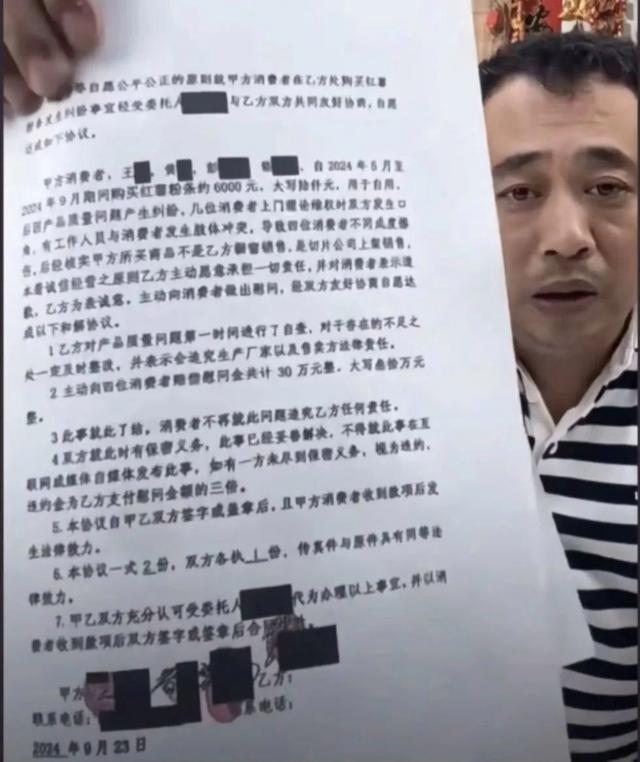 等自愿公平公正的原则就甲方消费者在乙方处购买红薯
发生纠纷事宜经受委托人 与乙方双方共同友好协商,自愿
达成如下协议。
甲方消费者,王 , 黄 , 彭 , , 自2024年5月至
2024年9月期间购买红薯粉条约6000元,大写陆仟元,用于自用,
后因产品质量问题产生纠纷,几位消费者上门理论维权时双方发生口
角,有工作人员与消费者发生肢体冲突,导致四位消费者不同成度擦
伤,后经核实甲方所买商品不是乙方橱窗销售,是切片公司上架销售,
本着诚信经营之原则乙方主动愿意承担一切责任,并对消费者表示道
歉,乙方为表诚意,主动向消费者做出慰问,经双方友好协商自愿达
成以下和解协议。
1乙方对产品质量问题第一时间进行了自查,对于存在的不足之
处一定及时整改,并表示会追究生产厂家以及售卖方法律责任。
2主动向四位消费者赔偿慰问金共计30万元整,大写叁拾万元
整。
3此事就此了结,消费者不再就此问题追究乙方任何责任。
4双方就此时有保密义务,此事已经妥善解决,不得就此事在互
联网或媒体自媒体发布此事,如有一方未尽到保密义务,视为违约,
违约金为乙方支付慰问金额的三倍。
5.本协议自甲乙双方签字或盖章后,且甲方消费者收到款项后发
生法律效力。
6.本协议一式2份,双方各执1份,传真件与原件具有同等法
律效力。
7.甲乙双方充分认可受委托人 代为办理以上事宜,并以消
费者收到款项后双方签字或签章后合同
甲方 乙方:
联系电话: 联系电话:
2024年9月23日